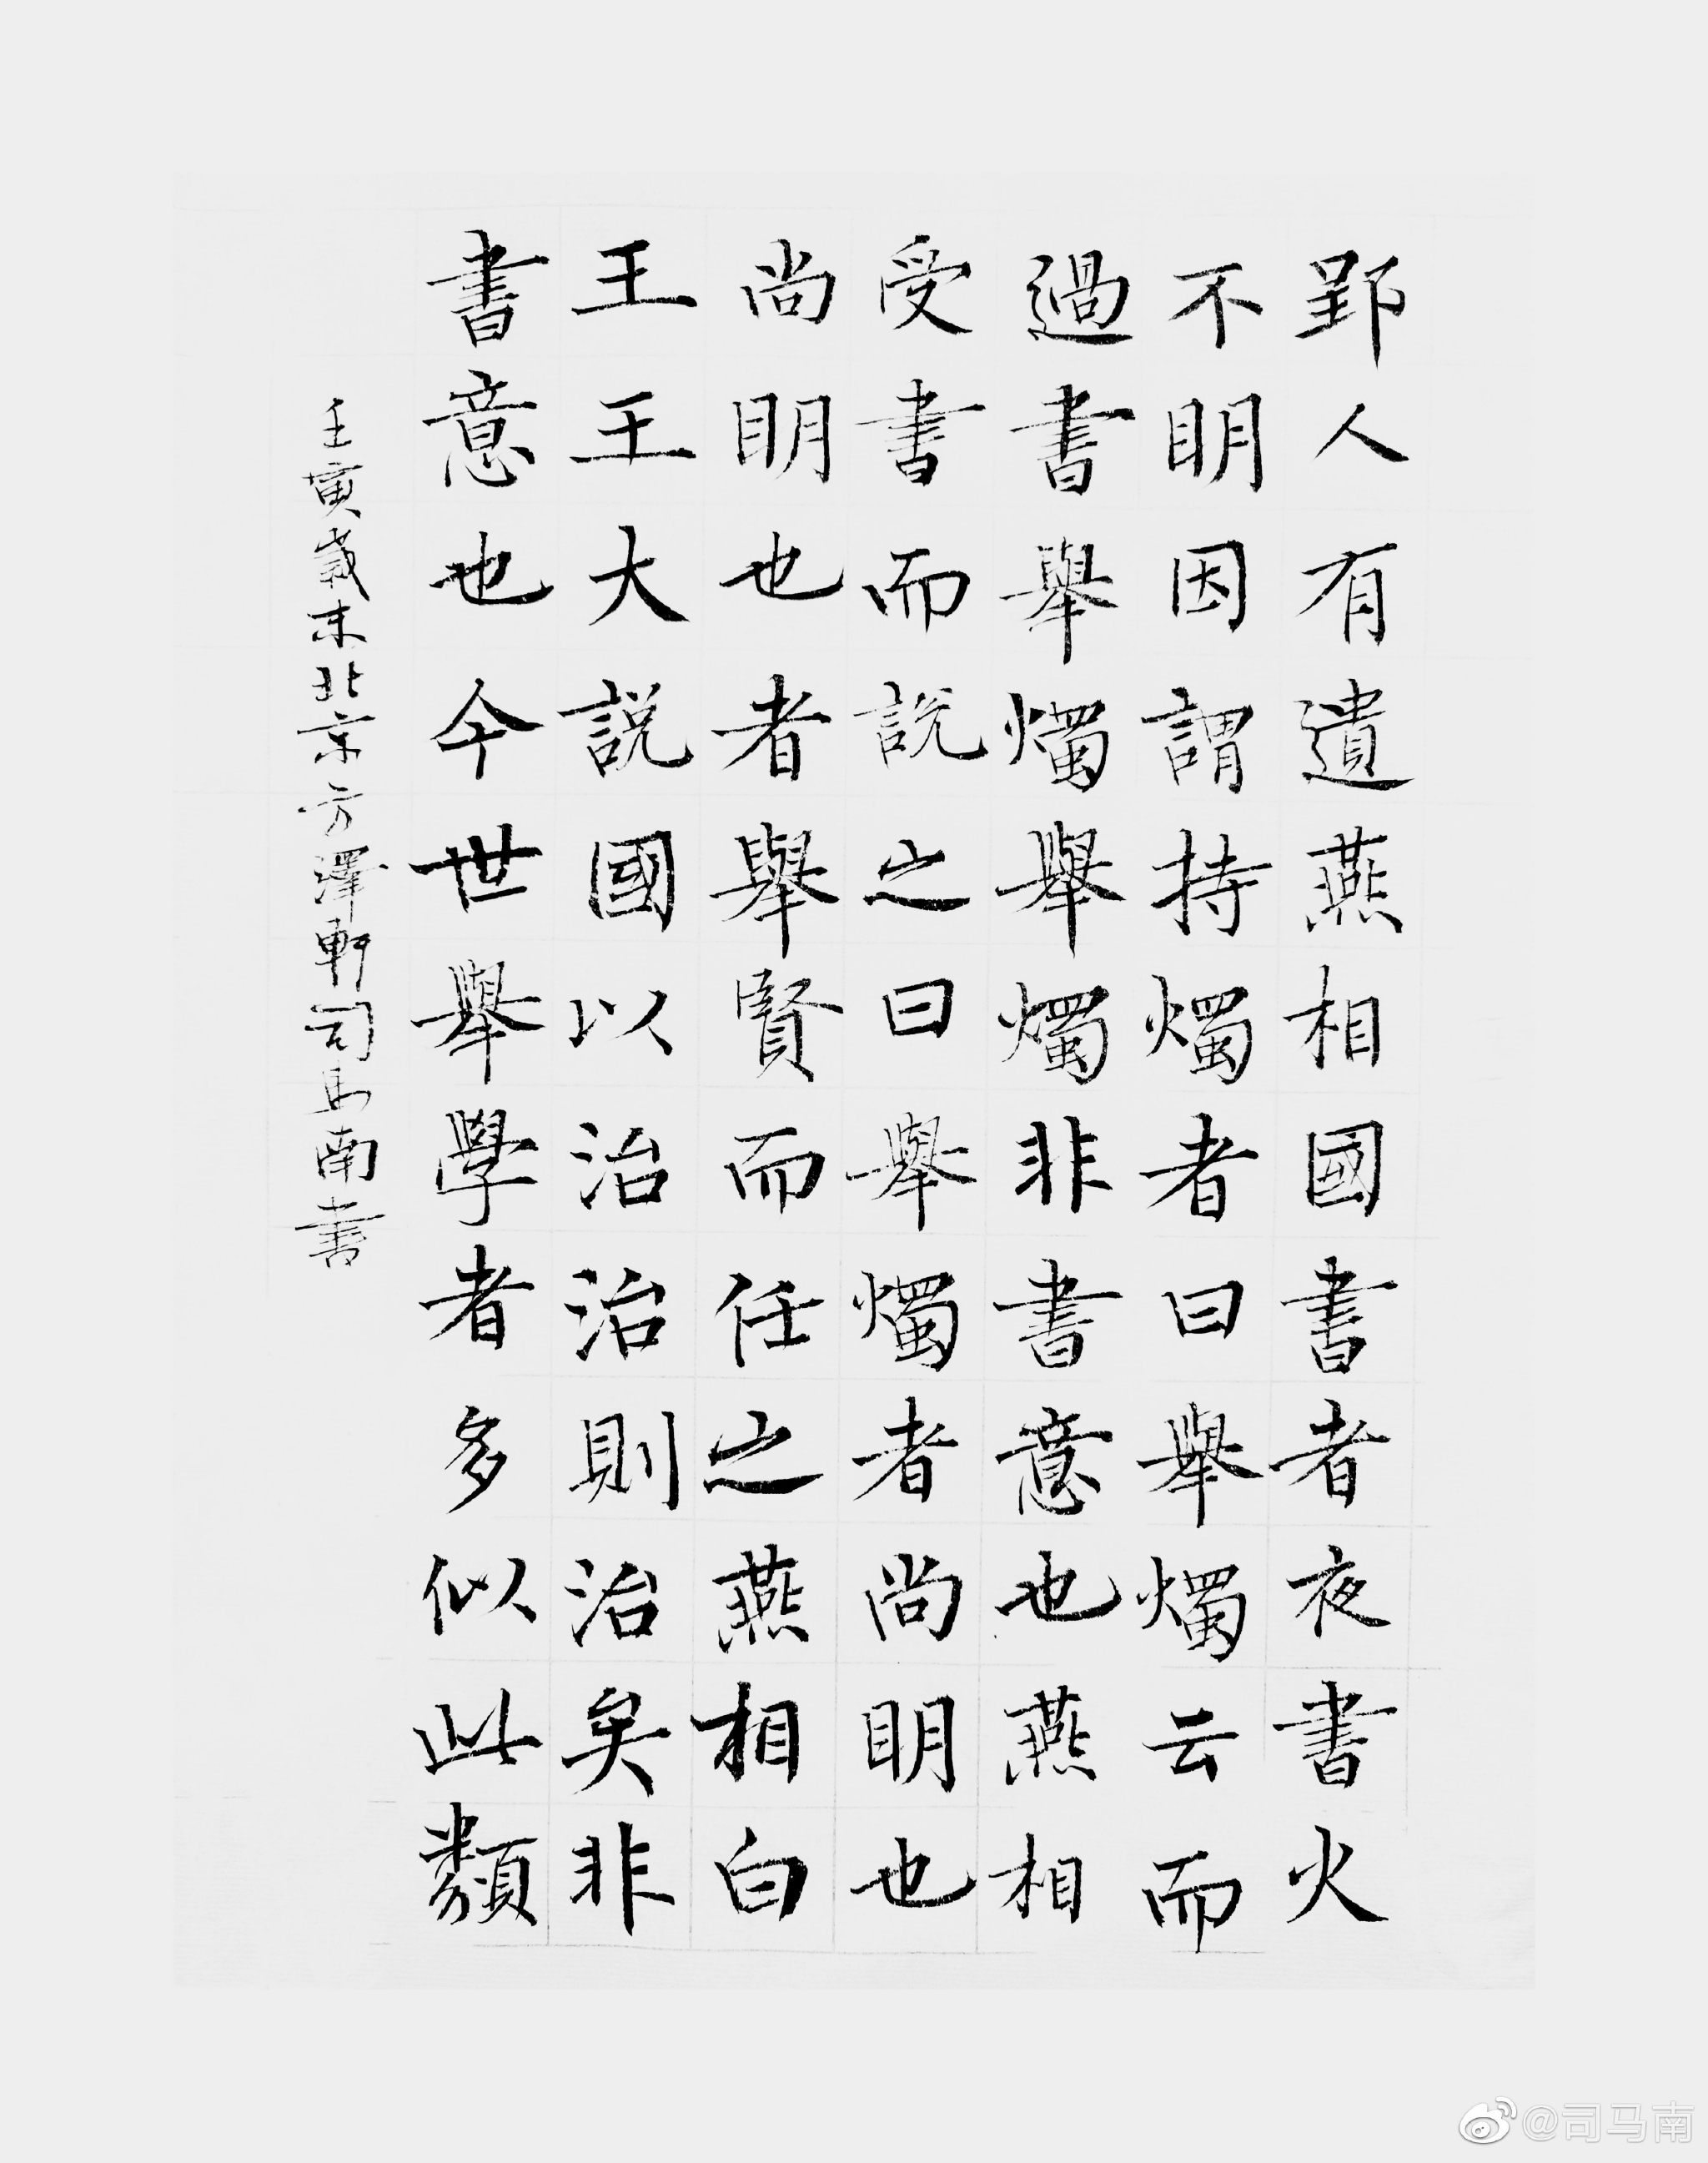 郢人有遺燕相國書者夜書火
不明因謂持燭者曰舉燭云而
過書舉燭舉燭非書意也燕相
受書而説之曰舉燭者尚明也
尚明也者舉賢而任之燕相白
王王大説國以治治則治矣非
書意也今世舉學者多似此類
壬寅歲末北京方澤軒司马南書
@司马南